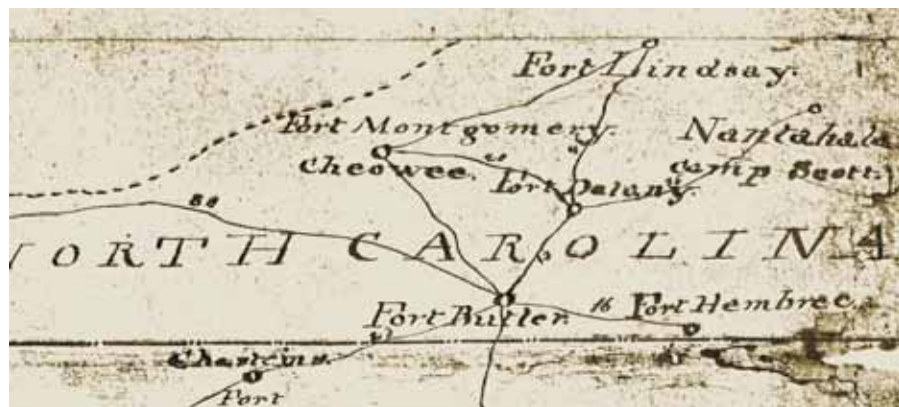 Fort Lindsay.
Fort Montgomery.
Nantahala
Cheowee.
20
camp Scott.
Fort Delany.
88
NORTH CAROLINA
Fort Butler
16
Fort Hembree.
Fort